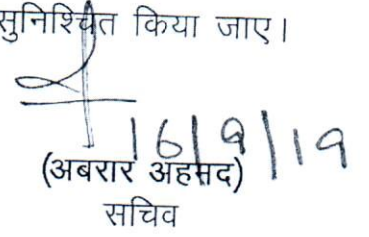 सुनिश्चित किया जाए।
16/9/19
(अबरार अहमद)
सचिव